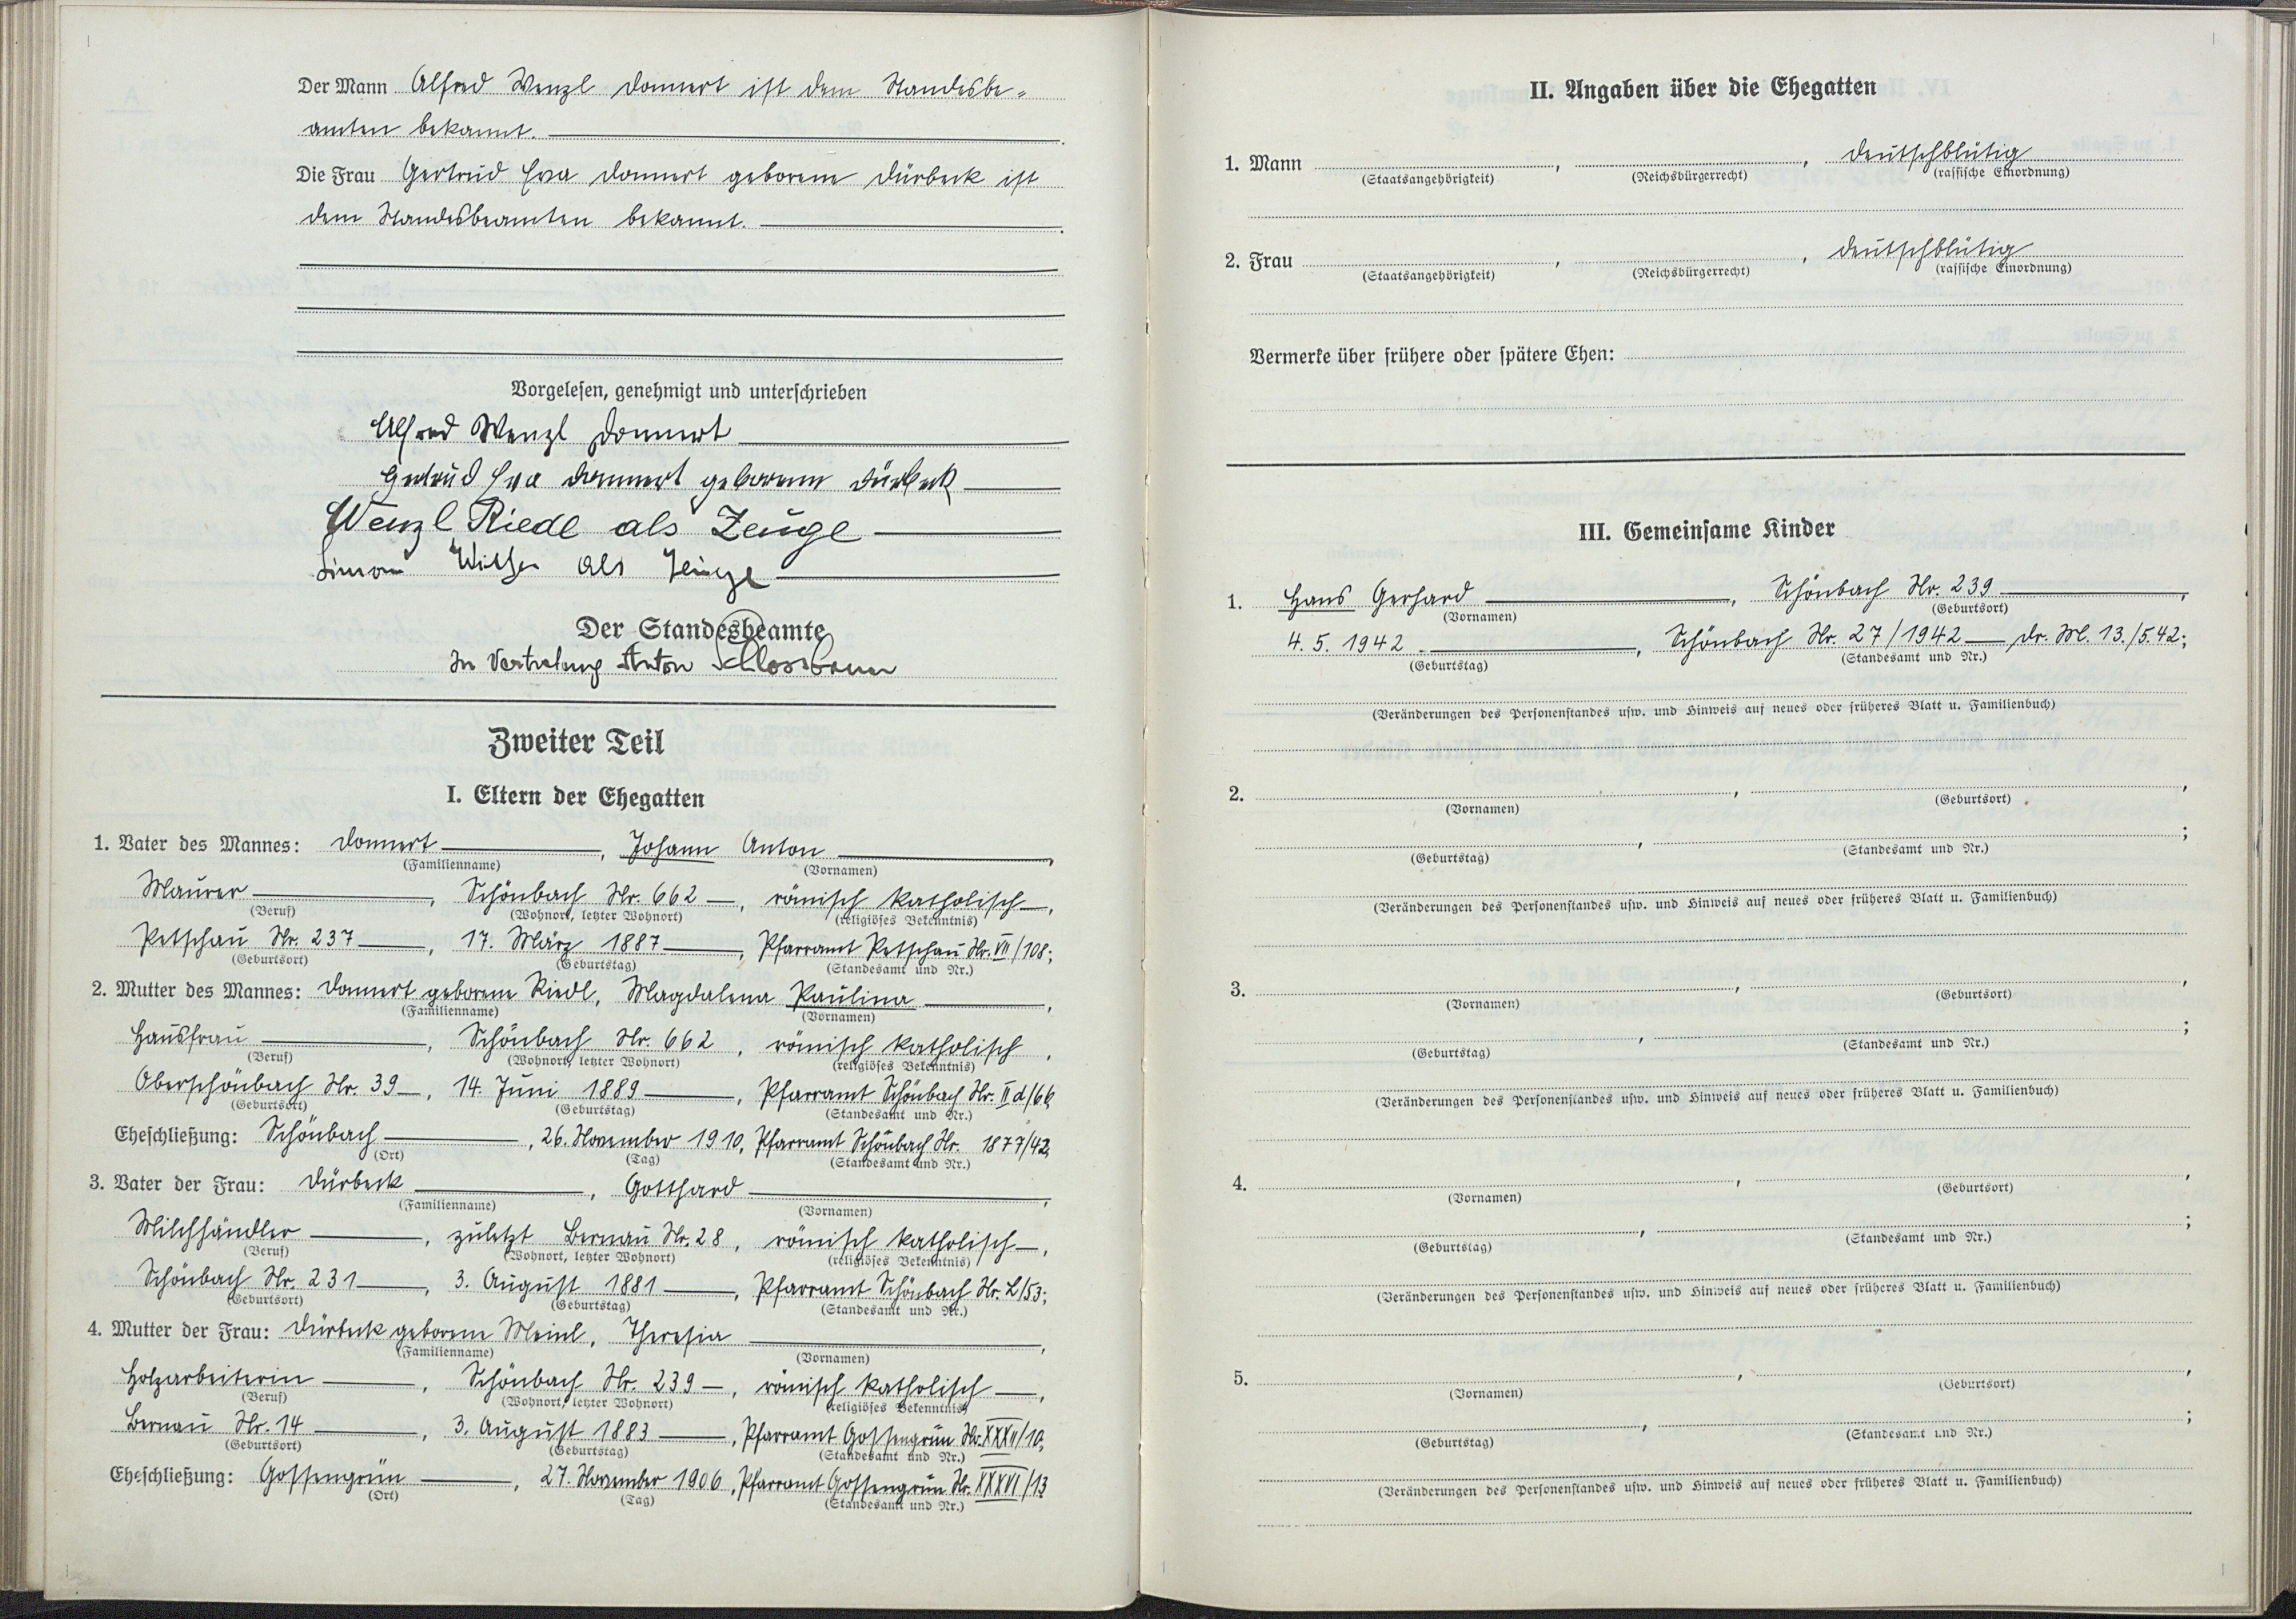 Der Mann Alfred Wenzl Donnert ist dem Standesbe-
amten bekannt.
Die Frau Gertrud Eva Donnert geborene Dürbeck ist
dem Standesbeamten bekannt.
Vorgelesen, genehmigt und unterschrieben
Alfred Wenzl Donnert
Gertrud Eva Donnert geborene Dürbeck
Wenzl Riedl als Zeuge
Simon als Zeuge
Der Standesbeamte
In Vertretung Anton
Zweiter Teil
I. Eltern der Ehegatten
1. Vater des Mannes: Donnert, Johann Anton,
(Familienname) (Vornamen)
Maurer, Schönbach Nr. 662, römisch katholisch,
(Beruf) (Wohnort, letzter Wohnort) (religiöses Bekenntnis)
Petschau Nr. 237, 17. März 1887, Pfarramt Petschau Nr. VII/108;
(Geburtsort) (Geburtstag) (Standesamt und Nr.)
2. Mutter des Mannes: Donnert geborene Riedl, Magdalena Paulina,
(Familienname) (Vornamen)
Hausfrau, Schönbach Nr. 662, römisch katholisch,
(Beruf) (Wohnort, letzter Wohnort) (religiöses Bekenntnis)
Oberschönbach Nr. 39, 14. Juni 1889, Pfarramt Schönbach Nr. II d/66
(Geburtsort) (Geburtstag) (Standesamt und Nr.)
Eheschließung: Schönbach, 26. November 1910, Pfarramt Schönbach Nr. 1877/42,
(Ort) (Tag) (Standesamt und Nr.)
3. Vater der Frau: Dürbeck, Gotthard,
(Familienname) (Vornamen)
Milchhändler, zuletzt Bernau Nr. 28, römisch katholisch,
(Beruf) (Wohnort, letzter Wohnort) (religiöses Bekenntnis)
Schönbach Nr. 231, 3. August 1881, Pfarramt Schönbach Nr. L/53;
(Geburtsort) (Geburtstag) (Standesamt und Nr.)
4. Mutter der Frau: Dürbeck geborene Meinl, Theresia,
(Familienname) (Vornamen)
Holzarbeiterin, Schönbach Nr. 239, römisch katholisch,
(Beruf) (Wohnort, letzter Wohnort) (religiöses Bekenntnis)
Bernau Nr. 14, 3. August 1883, Pfarramt Gossengrün Nr. XXXII/10,
(Geburtsort) (Geburtstag) (Standesamt und Nr.)
Eheschließung: Gossengrün, 27. November 1906, Pfarramt Gossengrün Nr. XXXVI/13
(Ort) (Tag) (Standesamt und Nr.)
II. Angaben über die Ehegatten
1. Mann , , deutschblütig
(Staatsangehörigkeit) (Reichsbürgerrecht) (rassische Einordnung)
2. Frau , , deutschblütig
(Staatsangehörigkeit) (Reichsbürgerrecht) (rassische Einordnung)
Vermerke über frühere oder spätere Ehen:
III. Gemeinsame Kinder
1. Hans Gerhard, Schönbach Nr. 239,
(Vornamen) (Geburtsort)
4. 5. 1942., Schönbach Nr. 27/1942 Dr. M. 13./5.42;
(Geburtstag) (Standesamt und Nr.)
(Veränderungen des Personenstandes usw. und Hinweis auf neues oder früheres Blatt u. Familienbuch)
2. , ,
(Vornamen) (Geburtsort)
, ;
(Geburtstag) (Standesamt und Nr.)
(Veränderungen des Personenstandes usw. und Hinweis auf neues oder früheres Blatt u. Familienbuch)
3. , ,
(Vornamen) (Geburtsort)
, ;
(Geburtstag) (Standesamt und Nr.)
(Veränderungen des Personenstandes usw. und Hinweis auf neues oder früheres Blatt u. Familienbuch)
4. , ,
(Vornamen) (Geburtsort)
, ;
(Geburtstag) (Standesamt und Nr.)
(Veränderungen des Personenstandes usw. und Hinweis auf neues oder früheres Blatt u. Familienbuch)
5. , ,
(Vornamen) (Geburtsort)
, ;
(Geburtstag) (Standesamt und Nr.)
(Veränderungen des Personenstandes usw. und Hinweis auf neues oder früheres Blatt u. Familienbuch)